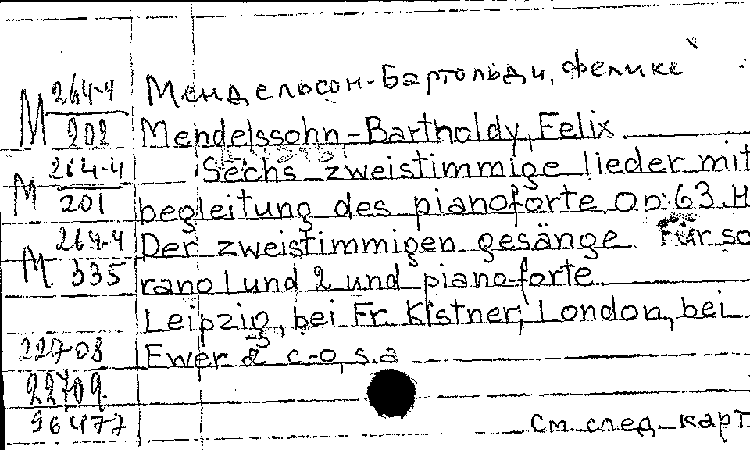 Мендельсон-Бартольди, Феликс
M 264-4/202
Mendelssohn-Bartholdy, Felix
M 264-4/201
Sechs zweistimmige lieder mit
begleitung des pianoforte op. 63. H
M 264-4/335
Der zweistimmigen gesänge. Für so
rano 1 und 2 und pianoforte
Leipzig, bei Fr. Kistner, London, bei
227-03
Ewer & c-o, s.a
22709
96477
См. след. карт